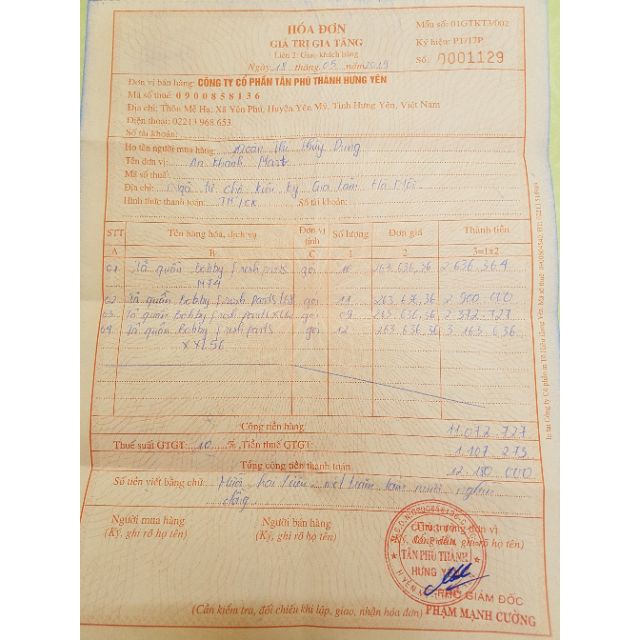 HÓA ĐƠN
GIÁ TRỊ GIA TĂNG
Liên 2: Giao khách hàng
Ngày 18 tháng 05 năm 2019
Mẫu số: 01GTKT3/002
Ký hiệu: P1/17P
Số: 0001129
Đơn vị bán hàng: CÔNG TY CỔ PHẦN TÂN PHÚ THÀNH HƯNG YÊN
Mã số thuế: 0900858136
Địa chỉ: Thôn Mễ Hạ, Xã Yên Phú, Huyện Yên Mỹ, Tỉnh Hưng Yên, Việt Nam
Điện thoại: 02213 968 653
Số tài khoản:
Họ tên người mua hàng: Thị Thùy Dung
Tên đơn vị: An Khánh Mart
Mã số thuế:
Địa chỉ: Ngã tư chợ Gia Lâm Hà Nội
Hình thức thanh toán: TM/CK Số tài khoản:
STT Tên hàng hóa, dịch vụ Đơn vị tính Số lượng Đơn giá Thành tiền
A B C 1 2 3=1x2
01 Tã quần Bobby fresh pants gói 10 263.636,36 2 636 364
02 Tã quần Bobby fresh pants gói 11 263.636,36 2 900 000
03 Tã quần Bobby fresh pants gói 09 263.636,36 2 372 727
04 Tã quần Bobby fresh pants gói 12 263.636,36 3 163 636
XXL56
Cộng tiền hàng: 11.072.727
Thuế suất GTGT: 10 % Tiền thuế GTGT: 1 107 273
Tổng cộng tiền thanh toán 12 180 000
Số tiền viết bằng chữ: Mười hai triệu một trăm tám mươi nghìn
đồng
Người mua hàng
(Ký, ghi rõ họ tên)
Người bán hàng
(Ký, ghi rõ họ tên)
Thủ trưởng đơn vị
(Ký, đóng dấu, ghi rõ họ tên)
CỔ PHẦN
TÂN PHÚ THÀNH
HƯNG YÊN
PHÓ GIÁM ĐỐC
PHẠM MẠNH CƯỜNG
(Cần kiểm tra, đối chiếu khi lập, giao, nhận hóa đơn)